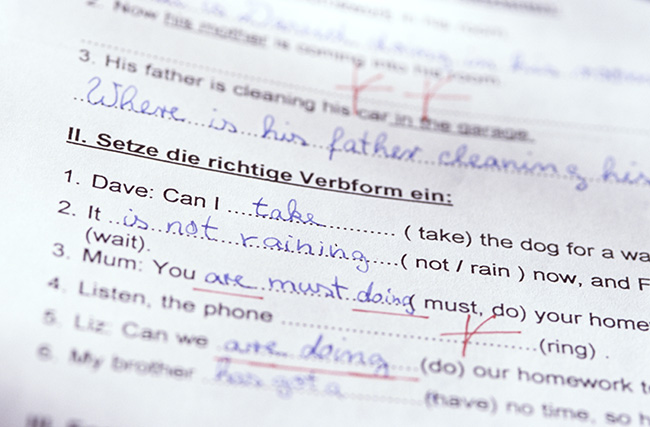 2. Now his mother is coming into his room.
3. His father is cleaning his car in the garage.
Where is his father cleaning his
II. Setze die richtige Verbform ein:
1. Dave: Can I take ( take) the dog for a wa
2. It is not raining ( not / rain ) now, and F
(wait).
3. Mum: You are must doing ( must, do) your home
4. Listen, the phone (ring) .
5. Liz: Can we are doing (do) our homework t
6. My brother has got a (have) no time, so h